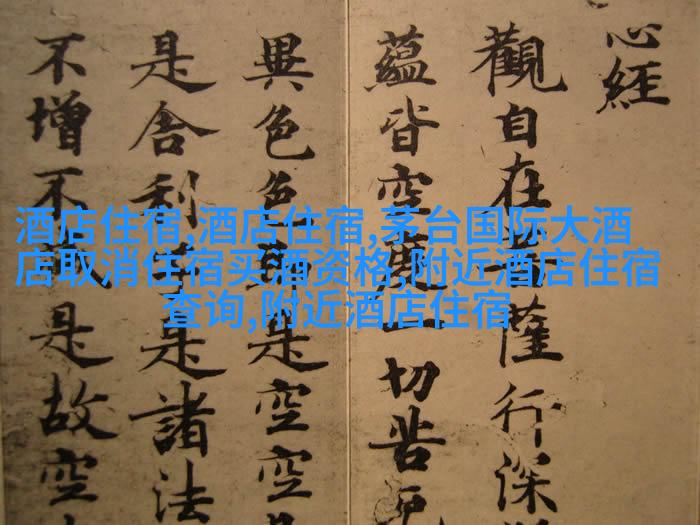 心經
觀自在菩薩行深
蘊皆空度一切苦厄
異色色即是空空
是舍利子是諸法
不增不減是故空
酒店住宿,酒店住宿,茅台国际大酒
店取消住宿买酒资格,附近酒店住宿
查询,附近酒店住宿